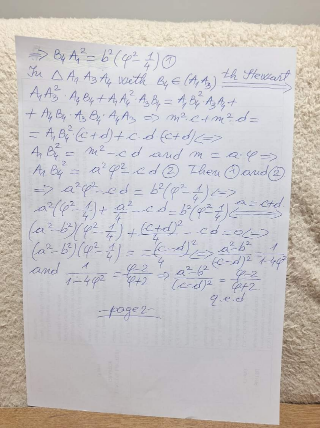 ⇒ B₄A₁² = b²(φ² - 1/4) ①
In △ A₁A₃A₄ with B₄∈(A₁A₃) th Stewart
A₁A₃² · A₄B₄ + A₁A₄² · A₃B₄ = A₁B₄² · A₃A₄ +
+ A₄B₄ · A₃B₄ · A₄A₃ ⇒ m²·c + m²·d =
= A₁B₄²(c+d) + c·d·(c+d) ⇔
A₁B₄² = m² - c·d and m = a·φ ⇒
A₁B₄² = a²φ² - c·d ② Then ① and ②
⇒ a²φ² - c·d = b²(φ² - 1/4) ⇔
a²(φ² - 1/4) + a²/4 - c·d = b²(φ² - 1/4) a=c+d
(a² - b²)(φ² - 1/4) + (c+d)²/4 - c·d = 0 ⇔
(a² - b²)(φ² - 1/4) = -(c-d)²/4 ⇔ a²-b²/(c-d)² = 1/1-4φ²
and 1/1-4φ² = φ-2/φ+2 ⇒ a²-b²/(c-d)² = φ-2/φ+2
q.e.d
-page2-